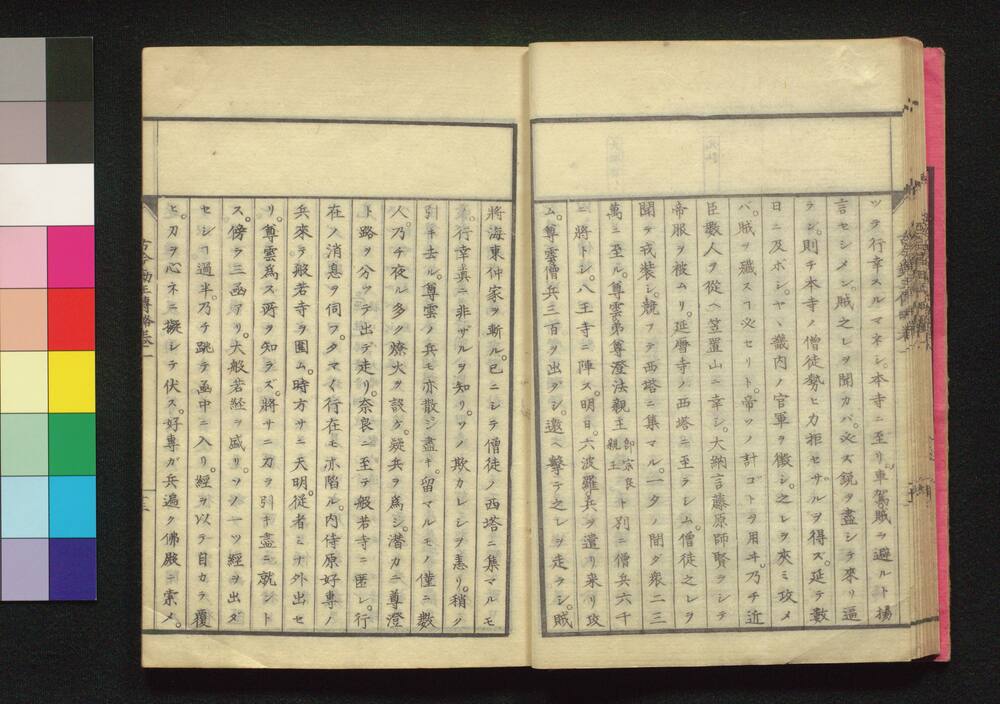 ツラ行幸スルマネシ。本寺ニ至リ車駕賊ヲ避ルト揚
言セシメン。賊之レヲ聞カバ。必ズ鋭ヲ盡シテ來リ逼
ラン。則チ本寺ノ僧徒勢ヒカ拒セサルヲ得ズ。延テ數
日ニ及ボシ。ヤヽ畿内ノ官軍ヲ徴シ。之レヲ夾ミ攻メ
バ。賊ヲ殲スヿ必セリト。帝ソノ計ゴトヲ用ヰ。乃チ近
臣數人ヲ從ヘ笠置山ニ幸シ。大納言藤原師賢ヲシテ
帝服ヲ被ムリ。延暦寺ノ西塔ニ至ラシム。僧徒之レヲ
聞テ戎裝シ。競フテ西塔ニ集マル。一夕ノ間ダ衆二三
萬ニ至ル。尊雲弟尊澄法親王即宗良親王ト別ニ僧兵六千
ニ將トシ。八王寺ニ陣ス。明日。六波羅兵ヲ遣リ來リ攻
ム。尊雲僧兵三百ヲ出タシ。邀ヘ擊テ之レヲ走ラシ。賊
將海東仲家ヲ斬ル。已ニシテ僧徒ノ西塔ニ集マルモ
ノ。行幸眞ニ非ザルヲ知リ。ソノ欺カレシヲ恚リ。稍ク
引キ去ル。尊雲ノ兵モ亦散ジ盡キ。留マルモノ僅ニ數
人。乃チ夜ル多ク燎火ヲ設ケ。疑兵ヲ爲シ。潛カニ尊澄
ト路ヲ分ツテ出デ走リ。奈良ニ至テ般若寺ニ匿レ。行
在ノ消息ヲ伺フ。タマく行在モ亦陷ル。内侍原好專ノ
兵來ラ般若寺ヲ圍ム。時方サニ天明。從者ミナ外出セ
リ。尊雲爲ス所ヲ知ラズ。將サニ刀ヲ引キ盡ニ就ント
ス。傍ラ三函アリ。大般若經ヲ盛リ。ソノ一ツ經ヲ出ダ
セシヿ過半。乃チ跳テ函中ニ入リ。經ヲ以テ自カラ覆
ヒ。刀ヲ心ネニ擬シテ伏ス。好專ガ兵遍ク佛殿ニ索メ。
古今勤王傳略卷一
十三